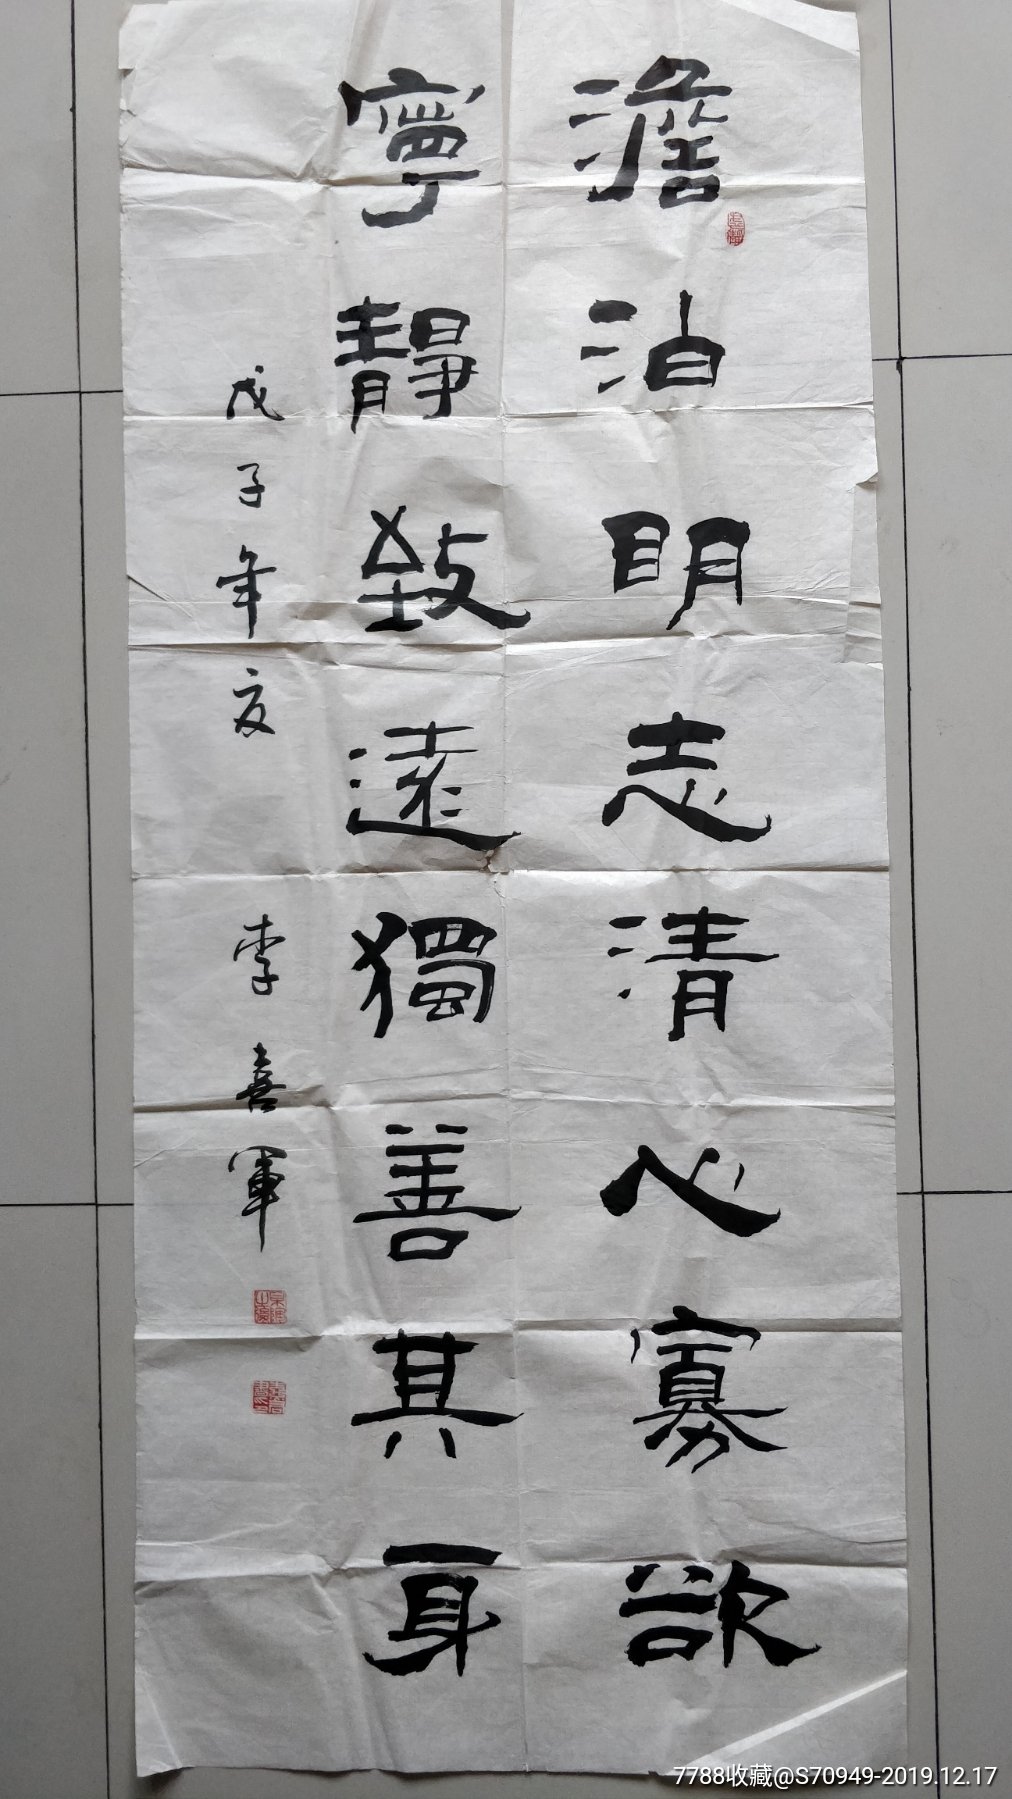 澹泊明志清心寡欲
寧靜致遠獨善其身
戊子年夏 李喜軍
7788收藏@S70949-2019.12.17